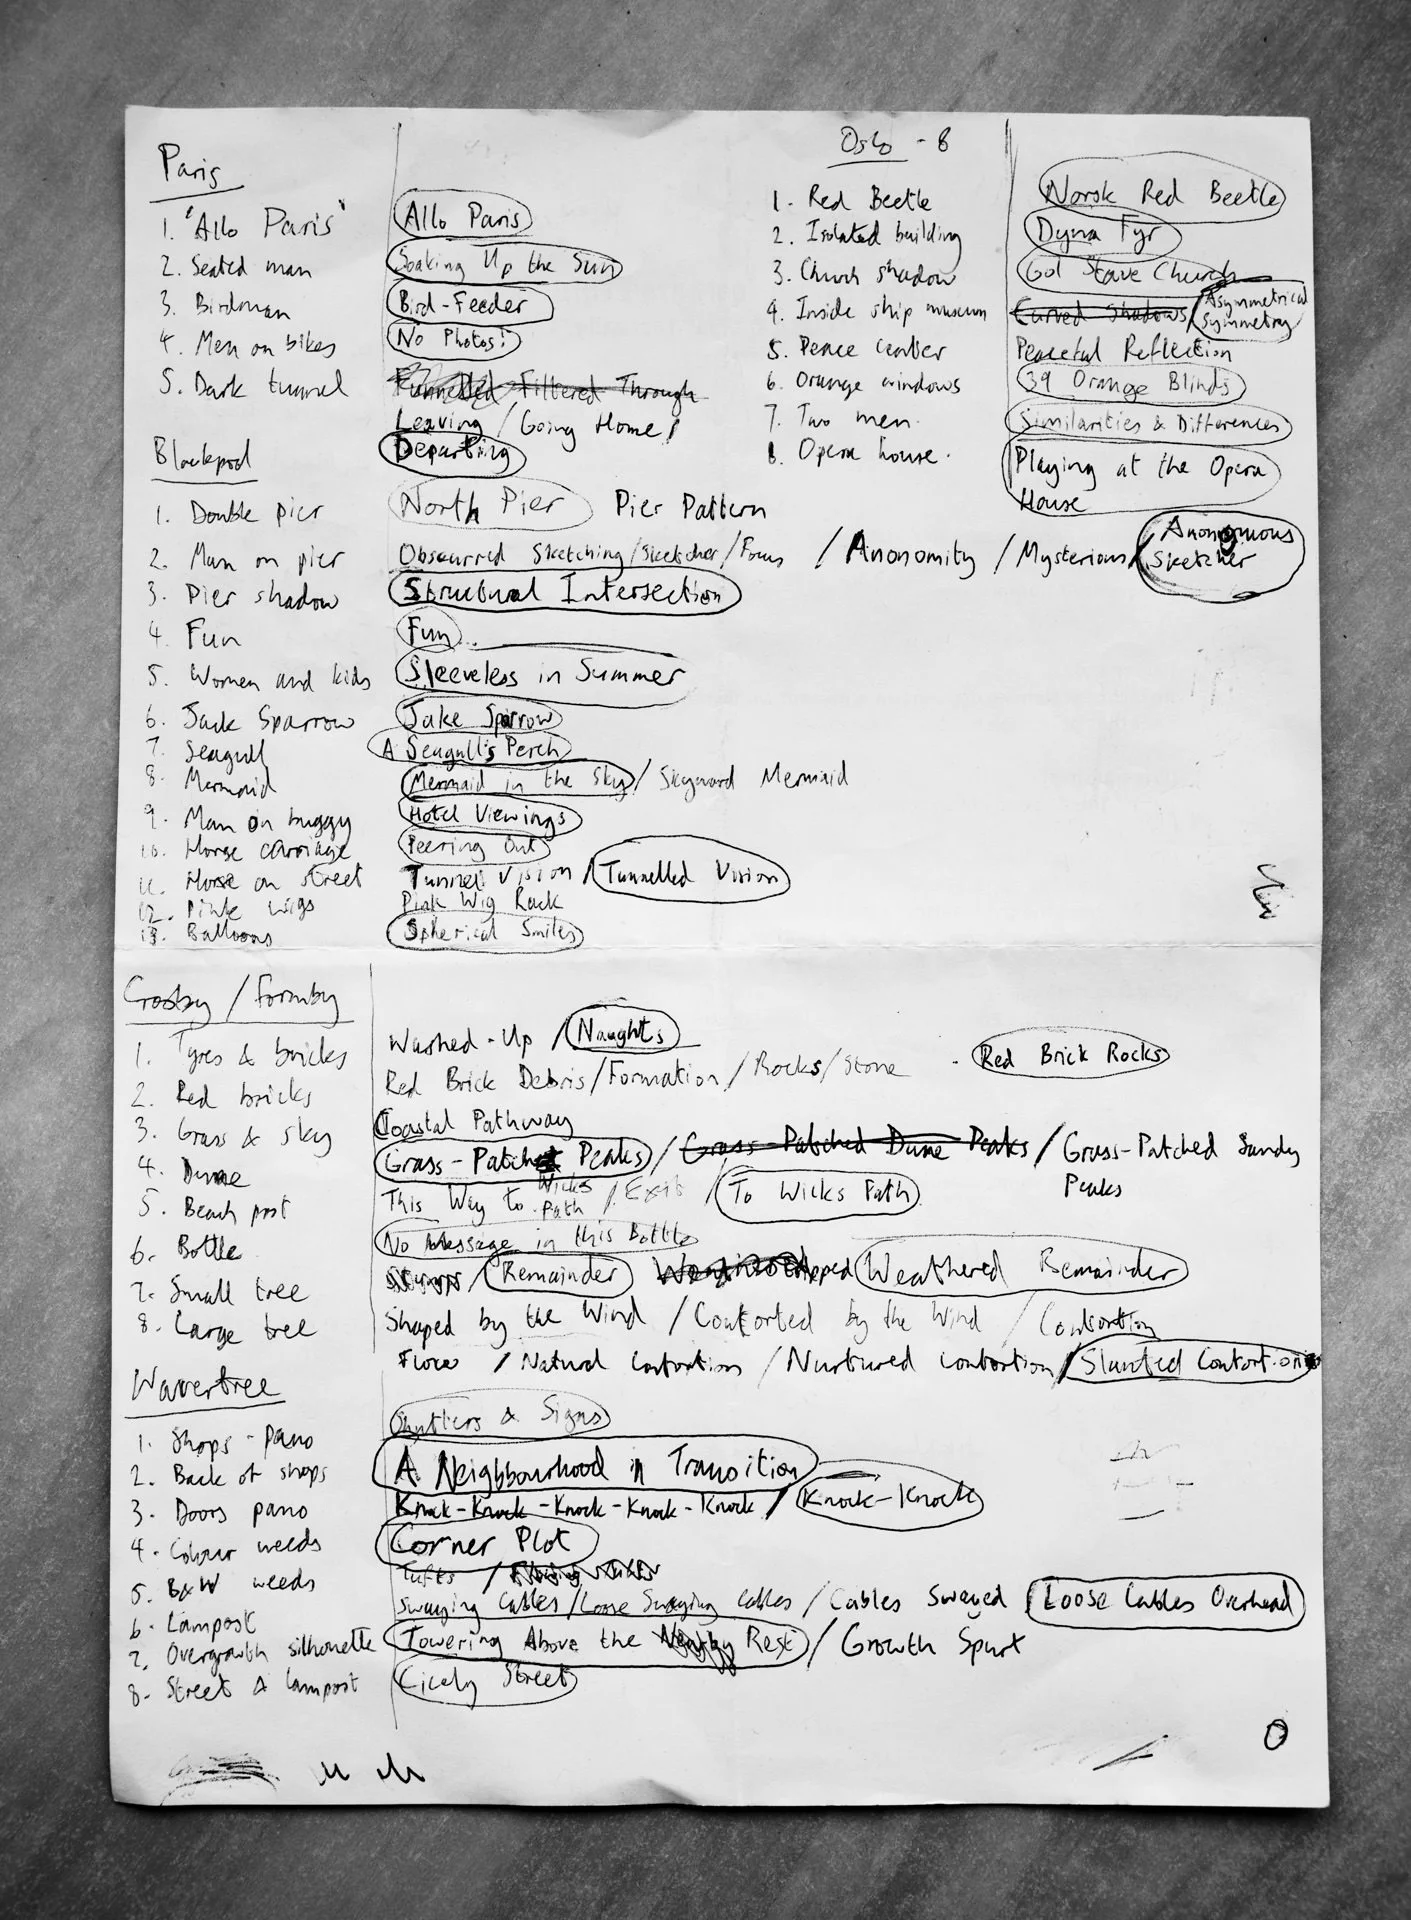 Paris
1. 'Allo Paris' Allo Paris
2. Seated man Soaking Up the Sun
3. Birdman Bird-Feeder
4. Men on bikes No Photos!
5. Dark tunnel Funnelled Filtered Through
Leaving / Going Home /
Departing
Oslo - 8
1. Red Beetle Norsk Red Beetle
2. Isolated building Dyna Fyr
3. Church shadow Gol Stave Church
4. Inside ship museum Curved Shadows / Asymmetrical
Symmetry
5. Peace Center Peaceful Reflection
6. Orange windows 39 Orange Blinds
7. Two men. Similarities & Differences
8. Opera house. Playing at the Opera
House
Blackpool
1. Double pier North Pier Pier Pattern
2. Man on pier Obscurred Sketching / Sketcher / Focus / Anonomity / Mysterious / Anonymous
Sketcher
3. Pier shadow Structural Intersection
4. Fun Fun...
5. Women and kids Sleeveless in Summer
6. Jack Sparrow Jake Sparrow
7. Seagull A Seagull's Perch
8. Mermaid Mermaid in the Sky / Skyward Mermaid
9. Man on buggy Hotel Viewings
10. Horse carriage Peering Out
11. Horse on street Tunnel Vision / Tunnelled Vision
12. Pink wigs Pink Wig Rack
13. Balloons Spherical Smiles
Crosby / Formby
1. Tyres & bricks Washed-Up / Naughts
2. Red bricks Red Brick Debris / Formation / Rocks / Stone - Red Brick Rocks
3. Grass & sky Coastal Pathway
4. Dune Grass-Patched Peaks / Grass-Patched Dune Peaks / Grass-Patched Sandy
Peaks
5. Beach post This Way to Wicks Path / Exit / To Wicks Path
6. Bottle No Message in this Bottle
7. Small tree / Remainder Weathered Remainder
8. Large tree Shaped by the Wind / Contorted by the Wind / Contortion
Flow / Natural Contortion / Nurtured Contortion / Slanted Contortion
Wavertree
1. Shops - pano Shutters & Signs
2. Back of shops A Neighbourhood in Transition
3. Doors pano Knock-Knock-Knock-Knock-Knock / Knock-Knock
4. Colour weeds Corner Plot
5. B&W weeds Tufts /
6. Lampost Swaying Cables / Loose Swaying Cables / Cables Swayed / Loose Cables Overhead
7. Overgrowth silhouette Towering Above the Rest / Growth Spurt
8. Street & lampost Cicely Street